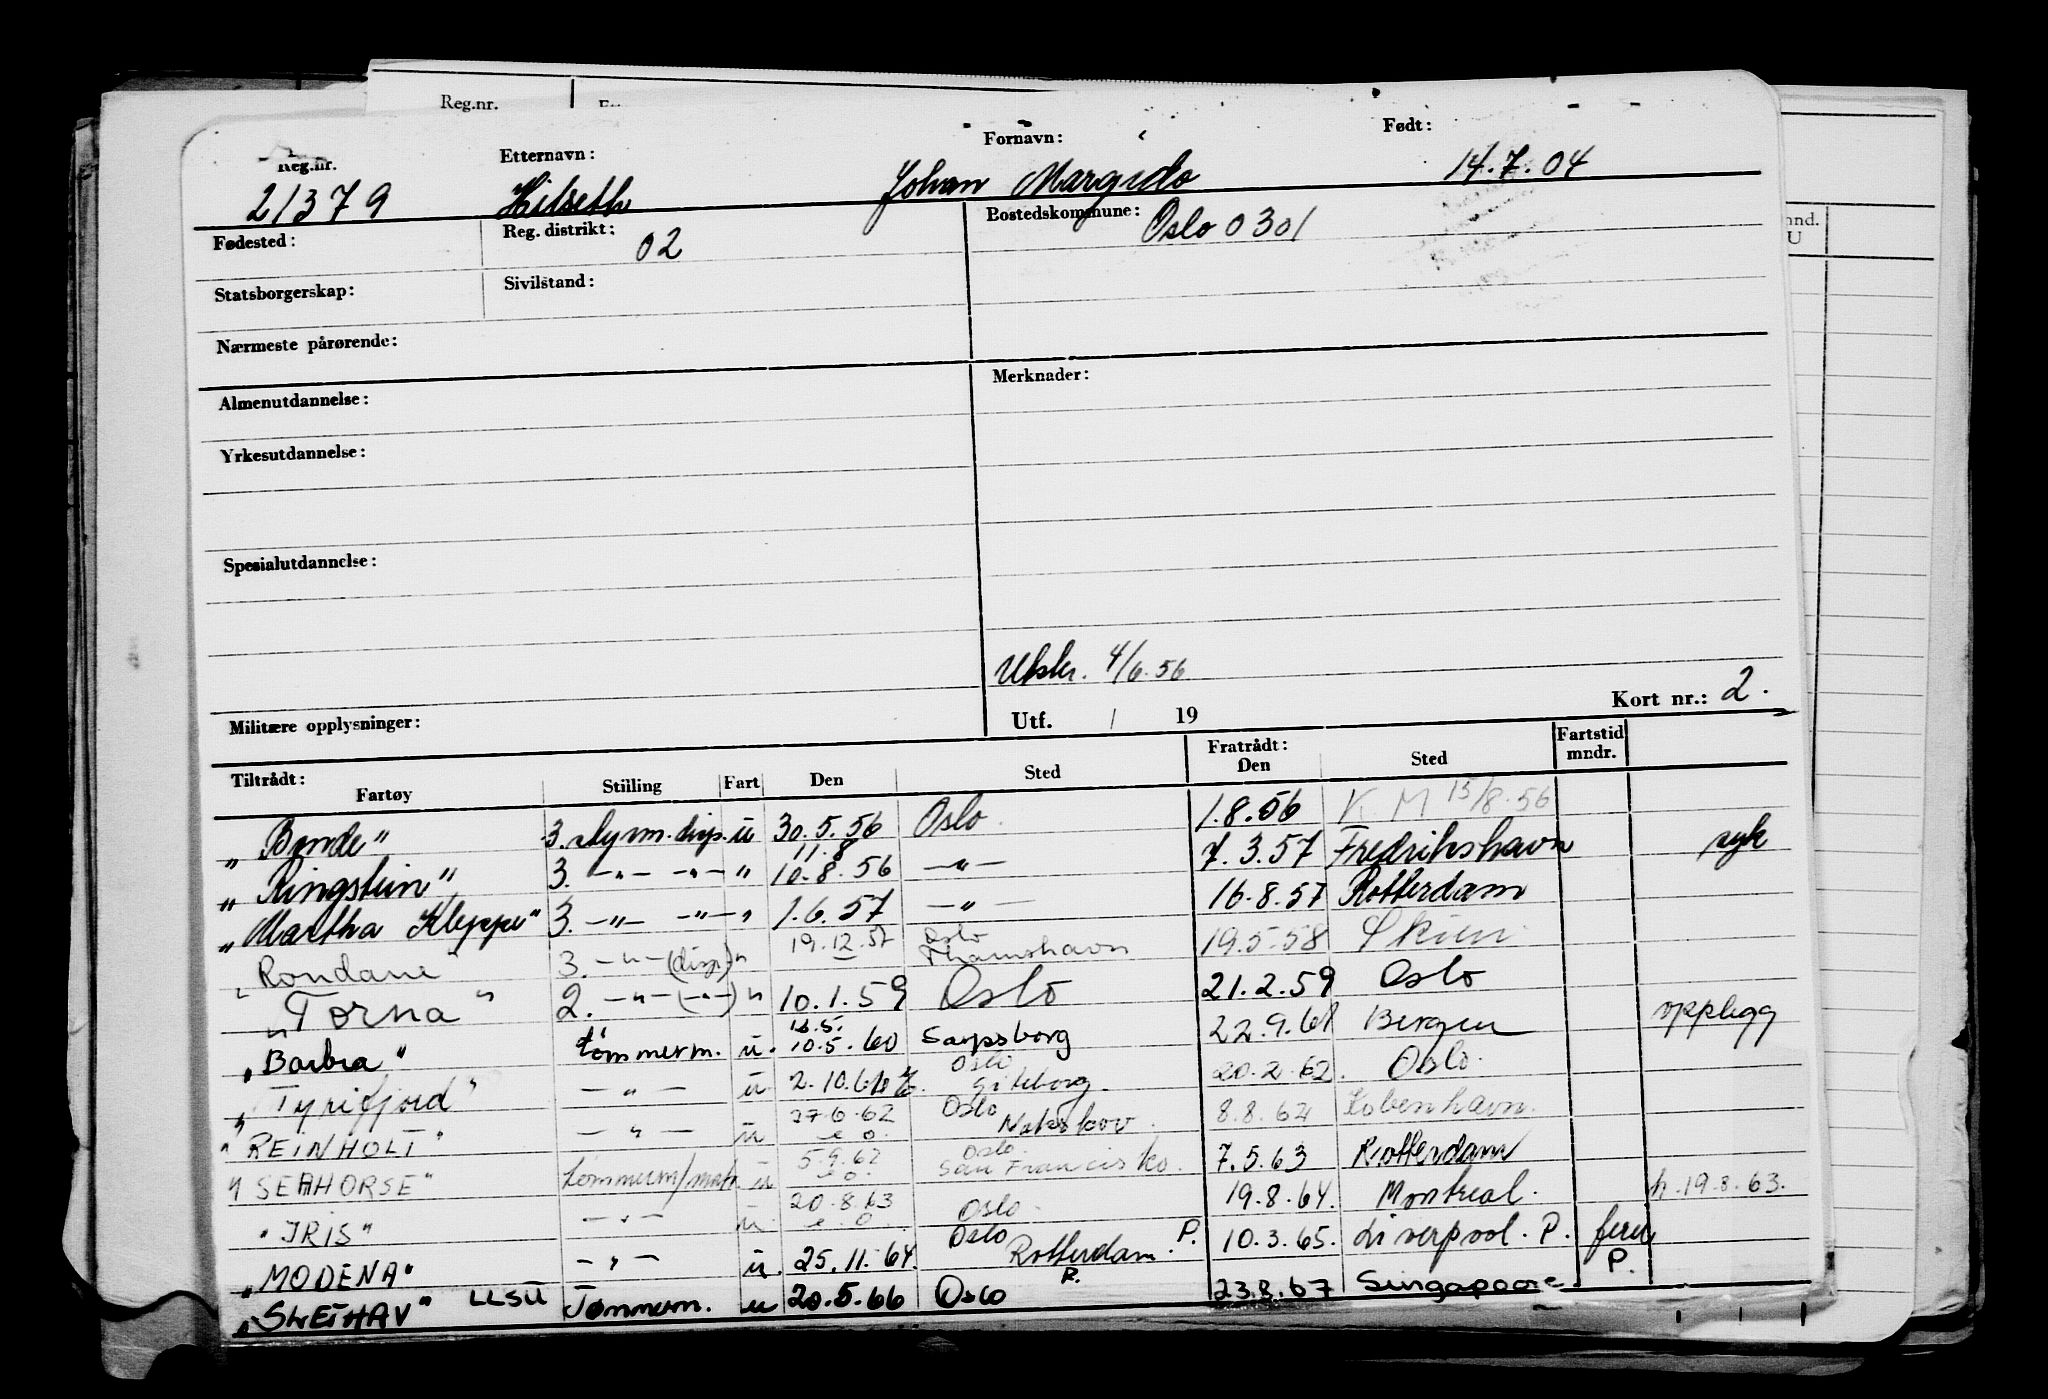 Reg.nr.
Reg.nr. Etternavn: Fornavn: Født:
21379 Hilseth Johan Margido 14.7.04
Fødested: Reg. distrikt: 02 Bostedskommune: Oslo 0301
Statsborgerskap: Sivilstand:
Nærmeste pårørende:
Almenutdannelse: Merknader:
Yrkesutdannelse:
Spesialutdannelse:
Utskr. 4/6.56
Militære opplysninger: Utf. / 19 Kort nr.: 2.
Tiltrådt: Fartøy Stilling Fart Den Sted Fratrådt: Den Sted Fartstid mndr.
"Bonde" 3. styrm. disp. u 30.5.56 Oslo 1.8.56 K M 15/8.56
11.8
"Ringstein" 3. -"- -"- " 10.8.56 -"- 7.3.57 Fredrikshavn syk
"Martha Kleppe" 3. -"- -"- " 1.6.57 -"- 16.8.57 Rotterdam
Oslo
"Rondane" 3. -"- (disp) " 19.12.57 Thamshavn 19.5.58 Skien
"Torna" 2. -"- (-"-) " 10.1.59 Oslo 21.2.59 Oslo
"Barbra" tømmerm. u. 10.5.60 Sarpsborg 22.9.61 Bergen opplegg
Oslo
"Tyrifjord" -"- u 2.10.61 Gøteborg. 20.2.62 Oslo.
Oslo
"REINHOLT" -"- u 27.6.62 Nakskov. 8.8.62 København.
Oslo.
"SEAHORSE" tømmerm/matr. u 5.9.62 San Francisko. 7.5.63 Rotterdam
"IRIS" -"- u 20.8.63 Oslo. 19.8.64. Montreal. h.19.8.63.
Oslo
"MODENA" -"- u. 25.11.64. Rotterdam. P. 10.3.65. Liverpool. P. ferie
"SLEIHAV" LLSU Tømmerm. u 20.5.66 Oslo P. 23.8.67 Singapoore P.
mnd.
U